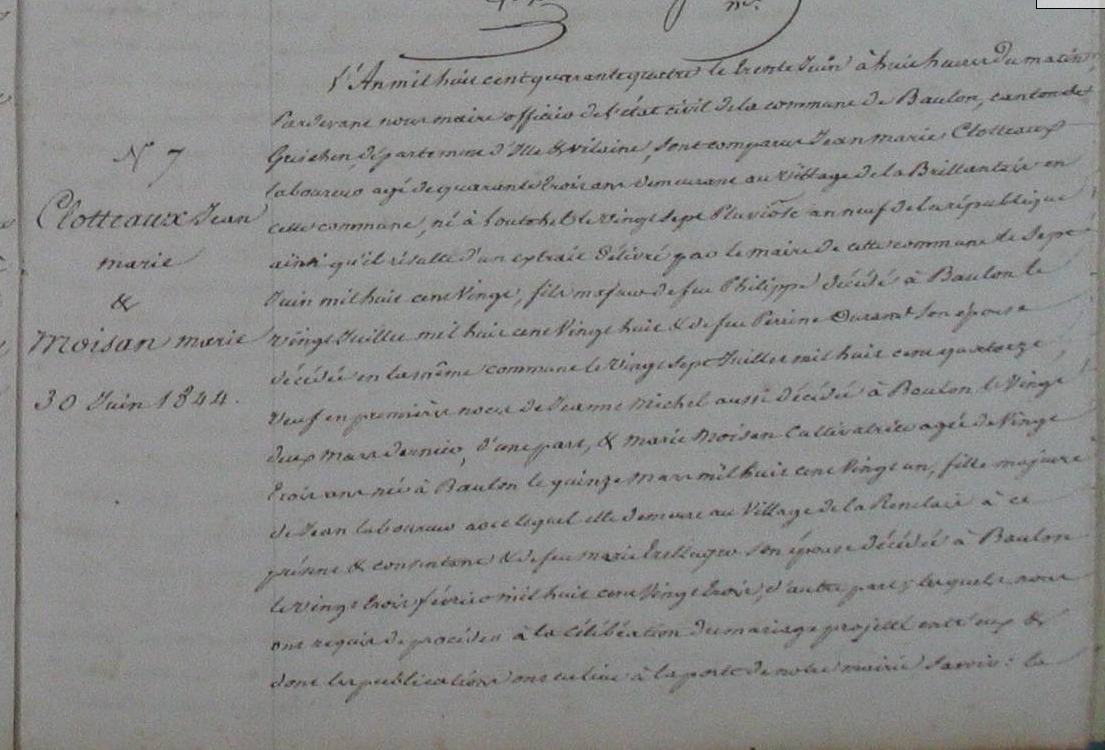 N 7
Clotteaux Jean
marie
&
Moisan marie
30 Juin 1844.
L'An mil huit cent quarante quatre le trente Juin à huit heures du matin
Pardevant nous maire officier de l'état civil de la commune de Baulon, canton de
Guichen, département d'Ille & Vilaine, sont comparus Jean marie Clotteaux
laboureur agé de quarante trois ans demeurant au village de la Brillantais en
cette commune, né à Loutehel le vingt sept Pluviôse an neuf de la république
ainsi qu'il résulte d'un extrait délivré par le maire de cette commune le sept
Juin mil huit cent vingt, fils majeur de feu Philippe décédé à Baulon le
vingt Juillet mil huit cent vingt huit & de feu Perrine Durand son épouse
décédée en la même commune le vingt sept Juillet mil huit cent quatorze
veuf en premières noces de Jeanne Michel aussi décédée à Baulon le vingt
deux mars dernier, d'une part, & marie Moisan Cultivatrice agée de vingt
trois ans née à Baulon le quinze mars mil huit cent vingt un, fille majeure
de Jean laboureur avec lequel elle demeure au village de la à ce
présent & consentant & de feu marie son épouse décédée à Baulon
le vingt trois février mil huit cent vingt trois, d'autre part; lesquels nous
ont requis de procéder à la célébration du mariage projetté entr'eux &
dont les publications ont eu lieu à la porte de notre mairie savoir: la